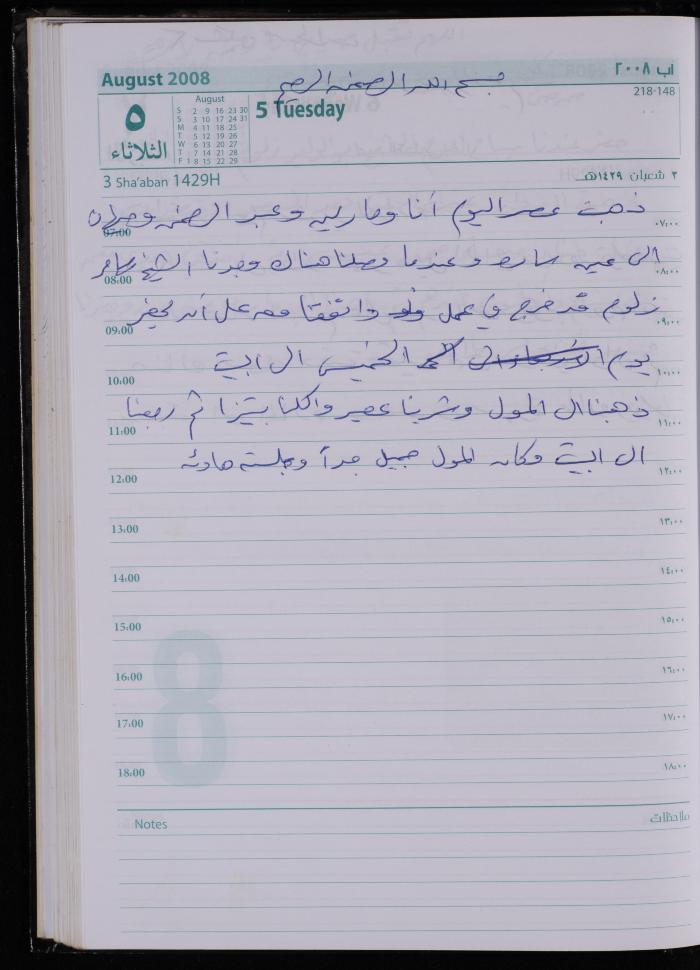 August 2008
بسم الله الرحمن الرحيم
آب ٢٠٠٨
218-148
٥
الثلاثاء
August
S 2 9 16 23 30
S 3 10 17 24 31
M 4 11 18 25
T 5 12 19 26
W 6 13 20 27
T 7 14 21 28
F 1 8 15 22 29
5 Tuesday
3 Sha'aban 1429H
٣ شعبان ١٤٢٩هـ
ذهبت عصر اليوم أنا ومارية وعبد الرحمن
07:00 ٠٧:٠٠
الى عين ساره وعندما وصلنا هناك وجدنا الشيخ
08:00 ٠٨:٠٠
زلوم قد خرج في عمل واتفقنا معه على أنه يحضر
09:00 ٠٩:٠٠
يوم الخميس الى البيت
10:00 ١٠:٠٠
ذهبنا الى المول وشربنا عصير واكلنا بيتزا ثم رجعنا
11:00 ١١:٠٠
الى البيت وكان المول جميل جداً وجلسته هادئه
12:00 ١٢:٠٠
13:00 ١٣:٠٠
14:00 ١٤:٠٠
15:00 ١٥:٠٠
16:00 ١٦:٠٠
17:00 ١٧:٠٠
18:00 ١٨:٠٠
8
Notes ملاحظات